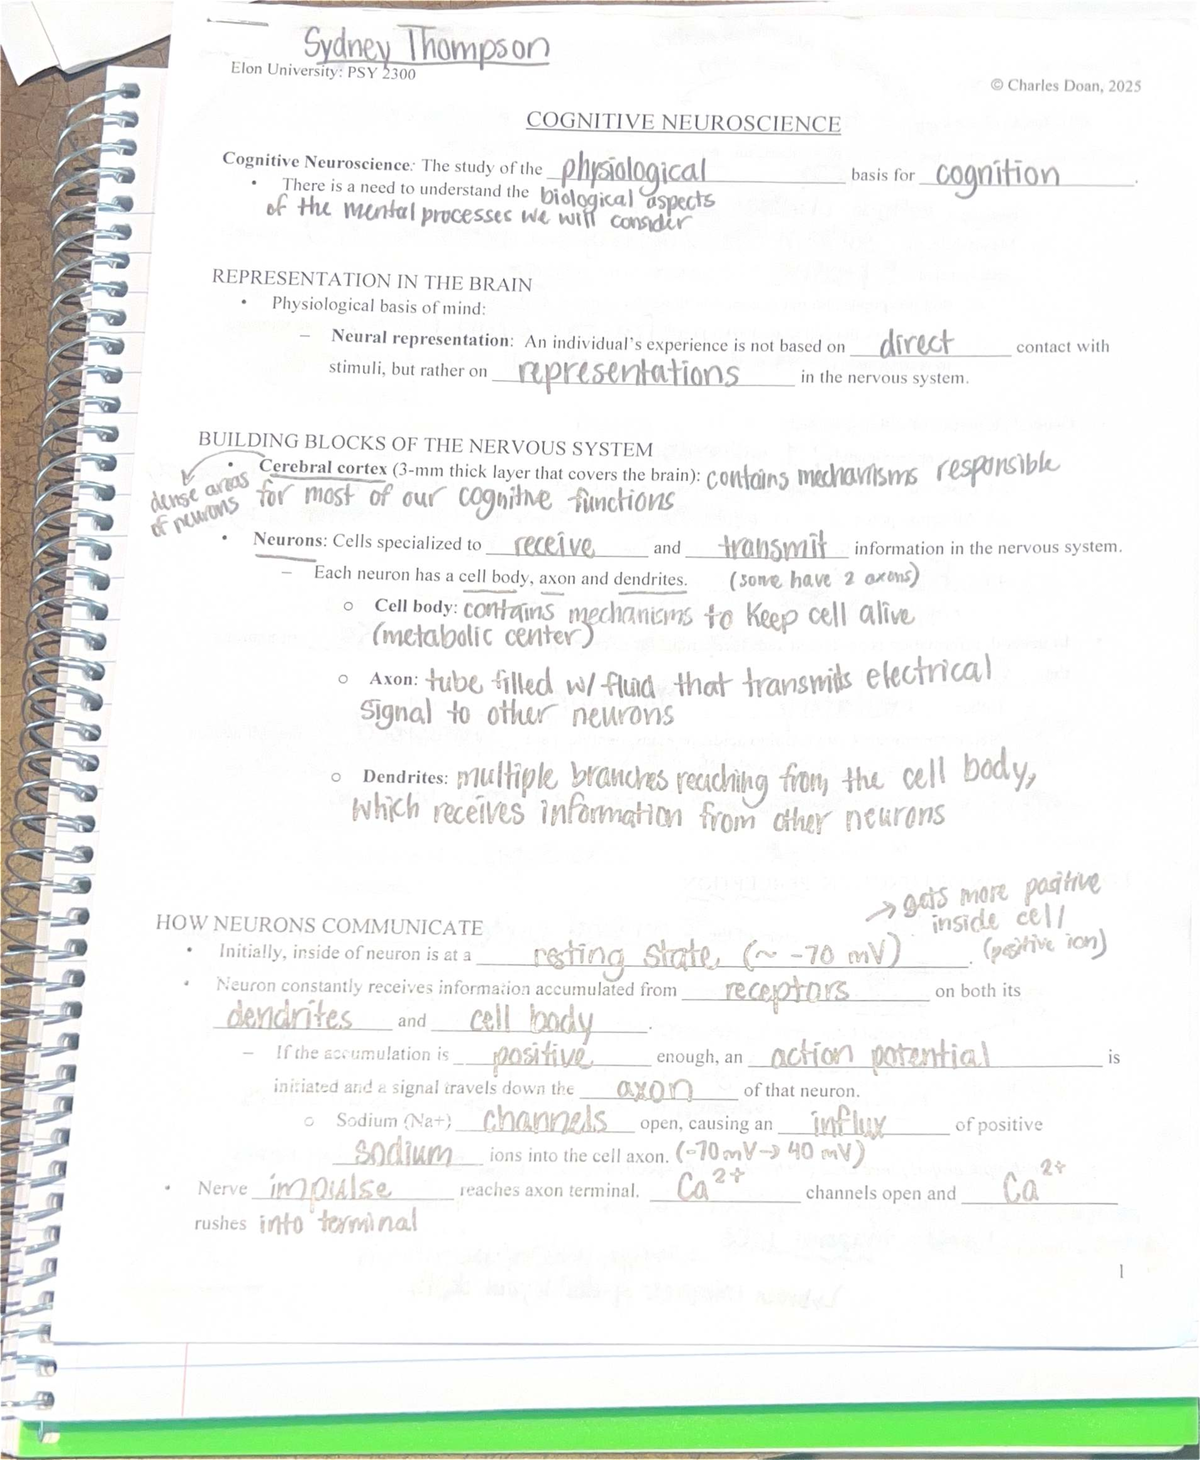 Sydney Thompson
Elon University: PSY 2300
© Charles Doan, 2025
COGNITIVE NEUROSCIENCE
Cognitive Neuroscience: The study of the physiological basis for cognition.
• There is a need to understand the biological aspects
of the mental processes we will consider
REPRESENTATION IN THE BRAIN
• Physiological basis of mind:
– Neural representation: An individual's experience is not based on direct contact with
stimuli, but rather on representations in the nervous system.
BUILDING BLOCKS OF THE NERVOUS SYSTEM
• Cerebral cortex (3-mm thick layer that covers the brain): contains mechanisms responsible
for most of our cognitive functions
dense areas
of neurons
• Neurons: Cells specialized to receive and transmit information in the nervous system.
– Each neuron has a cell body, axon and dendrites. (some have 2 axons)
o Cell body: contains mechanisms to keep cell alive
(metabolic center)
o Axon: tube filled w/ fluid that transmits electrical
signal to other neurons
o Dendrites: multiple branches reaching from the cell body,
which receives information from other neurons
→ gets more positive
inside cell
(positive ion)
HOW NEURONS COMMUNICATE
• Initially, inside of neuron is at a resting state (~ -70 mV).
• Neuron constantly receives information accumulated from receptors on both its
dendrites and cell body.
– If the accumulation is positive enough, an action potential is
initiated and a signal travels down the axon of that neuron.
o Sodium (Na+) channels open, causing an influx of positive
sodium ions into the cell axon. (-70mV→ 40 mV)
• Nerve impulse reaches axon terminal. Ca2+ channels open and Ca2+
rushes into terminal
1